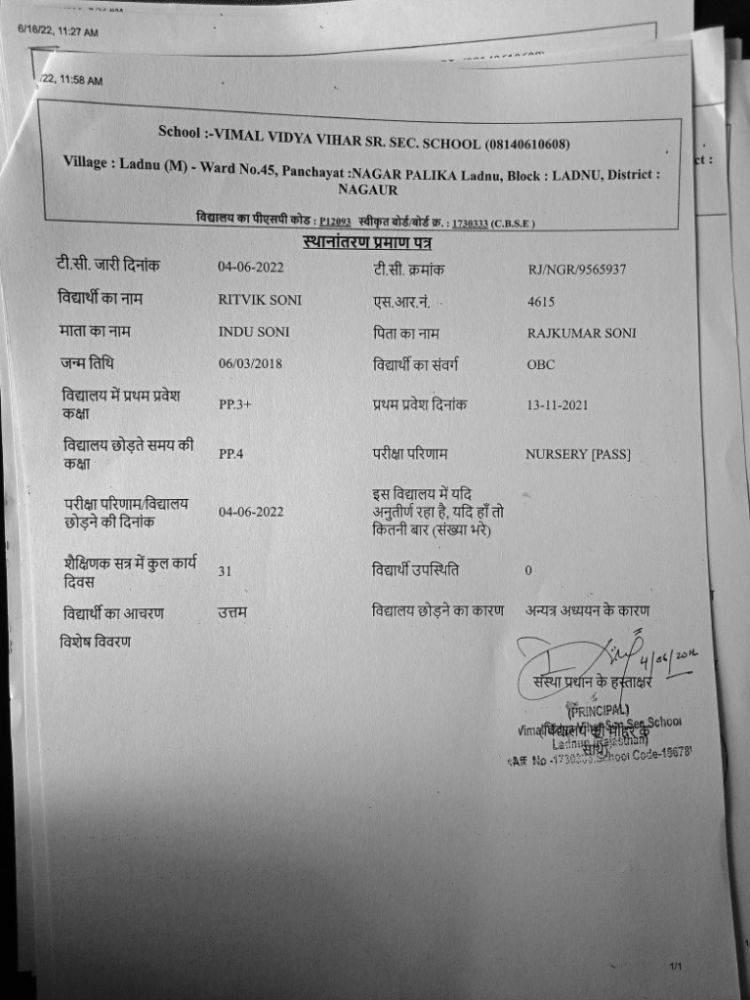 6/16/22, 11:27 AM
/22, 11:58 AM
ct :
School :-VIMAL VIDYA VIHAR SR. SEC. SCHOOL (08140610608)
Village : Ladnu (M) - Ward No.45, Panchayat :NAGAR PALIKA Ladnu, Block : LADNU, District :
NAGAUR
विद्यालय का पीएसपी कोड : P12093 स्वीकृत बोर्ड/बोर्ड क्र. : 1730333 (C.B.S.E )
स्थानांतरण प्रमाण पत्र
टी.सी. जारी दिनांक 04-06-2022 टी.सी. क्रमांक RJ/NGR/9565937
विद्यार्थी का नाम RITVIK SONI एस.आर.नं. 4615
माता का नाम INDU SONI पिता का नाम RAJKUMAR SONI
जन्म तिथि 06/03/2018 विद्यार्थी का संवर्ग OBC
विद्यालय में प्रथम प्रवेश
कक्षा PP.3+ प्रथम प्रवेश दिनांक 13-11-2021
विद्यालय छोड़ते समय की
कक्षा PP.4 परीक्षा परिणाम NURSERY [PASS]
परीक्षा परिणाम/विद्यालय
छोड़ने की दिनांक 04-06-2022
इस विद्यालय में यदि
अनुतीर्ण रहा है, यदि हाँ तो
कितनी बार (संख्या भरे)
शैक्षिणक सत्र में कुल कार्य
दिवस 31 विद्यार्थी उपस्थिति 0
विद्यार्थी का आचरण उत्तम विद्यालय छोड़ने का कारण अन्यत्र अध्ययन के कारण
विशेष विवरण
संस्था प्रधान के हस्ताक्षर
(PRINCIPAL)
Sec.School
(विद्यालय की मोहर के
साथ)
Ladnun (Rajasthan)
School Code-
1/1